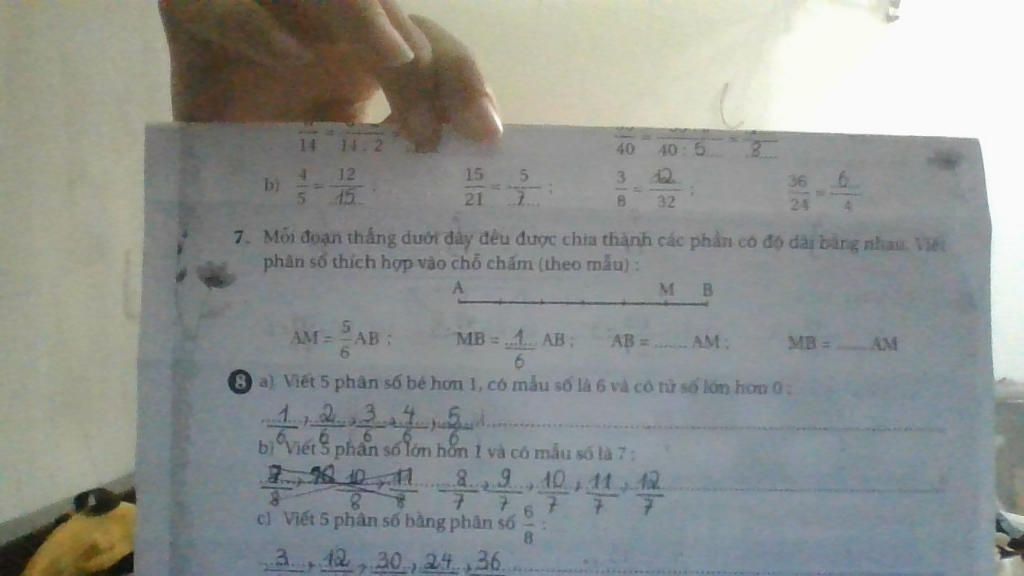 14 = 14 : 2
40 = 40 : 5 = 8
b) 4/5 = 12/15 ; 15/21 = 5/7 ; 3/8 = 12/32 ; 36/24 = 6/4
7. Mỗi đoạn thẳng dưới đây đều được chia thành các phần có độ dài bằng nhau. Viết
phân số thích hợp vào chỗ chấm (theo mẫu) :
A M B
AM = 5/6 AB ; MB = 1/6 AB ; AB = ...... AM ; MB = ...... AM
8 a) Viết 5 phân số bé hơn 1, có mẫu số là 6 và có tử số lớn hơn 0 :
1/6 , 2/6 , 3/6 , 4/6 , 5/6
b) Viết 5 phân số lớn hơn 1 và có mẫu số là 7 :
8/7 , 9/7 , 10/7 , 11/7 , 12/7
c) Viết 5 phân số bằng phân số 6/8 :
3 , 12 , 30 , 24 , 36